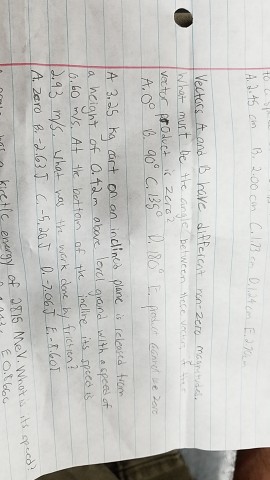 A. 2.45 cm B. 2.00 cm C. 1.73 cm D. 1.24 cm E.
Vectors A and B have different non-zero magnitudes
What must be the angle between their vectors if the
vector product is zero?
A. 0° B. 90° C. 135° D. 180° E. product cannot be zero
A 3.25 kg cart on an inclined plane is released from
a height of 0.42 m above level ground with a speed of
0.60 m/s. At the bottom of the incline its speed is
2.93 m/s. What was the work done by friction?
A. zero B. -2.63 J C. -5.20 J D. -7.06 J E. -8.60 J
has a kinetic energy of 2815 MeV. What is its speed?